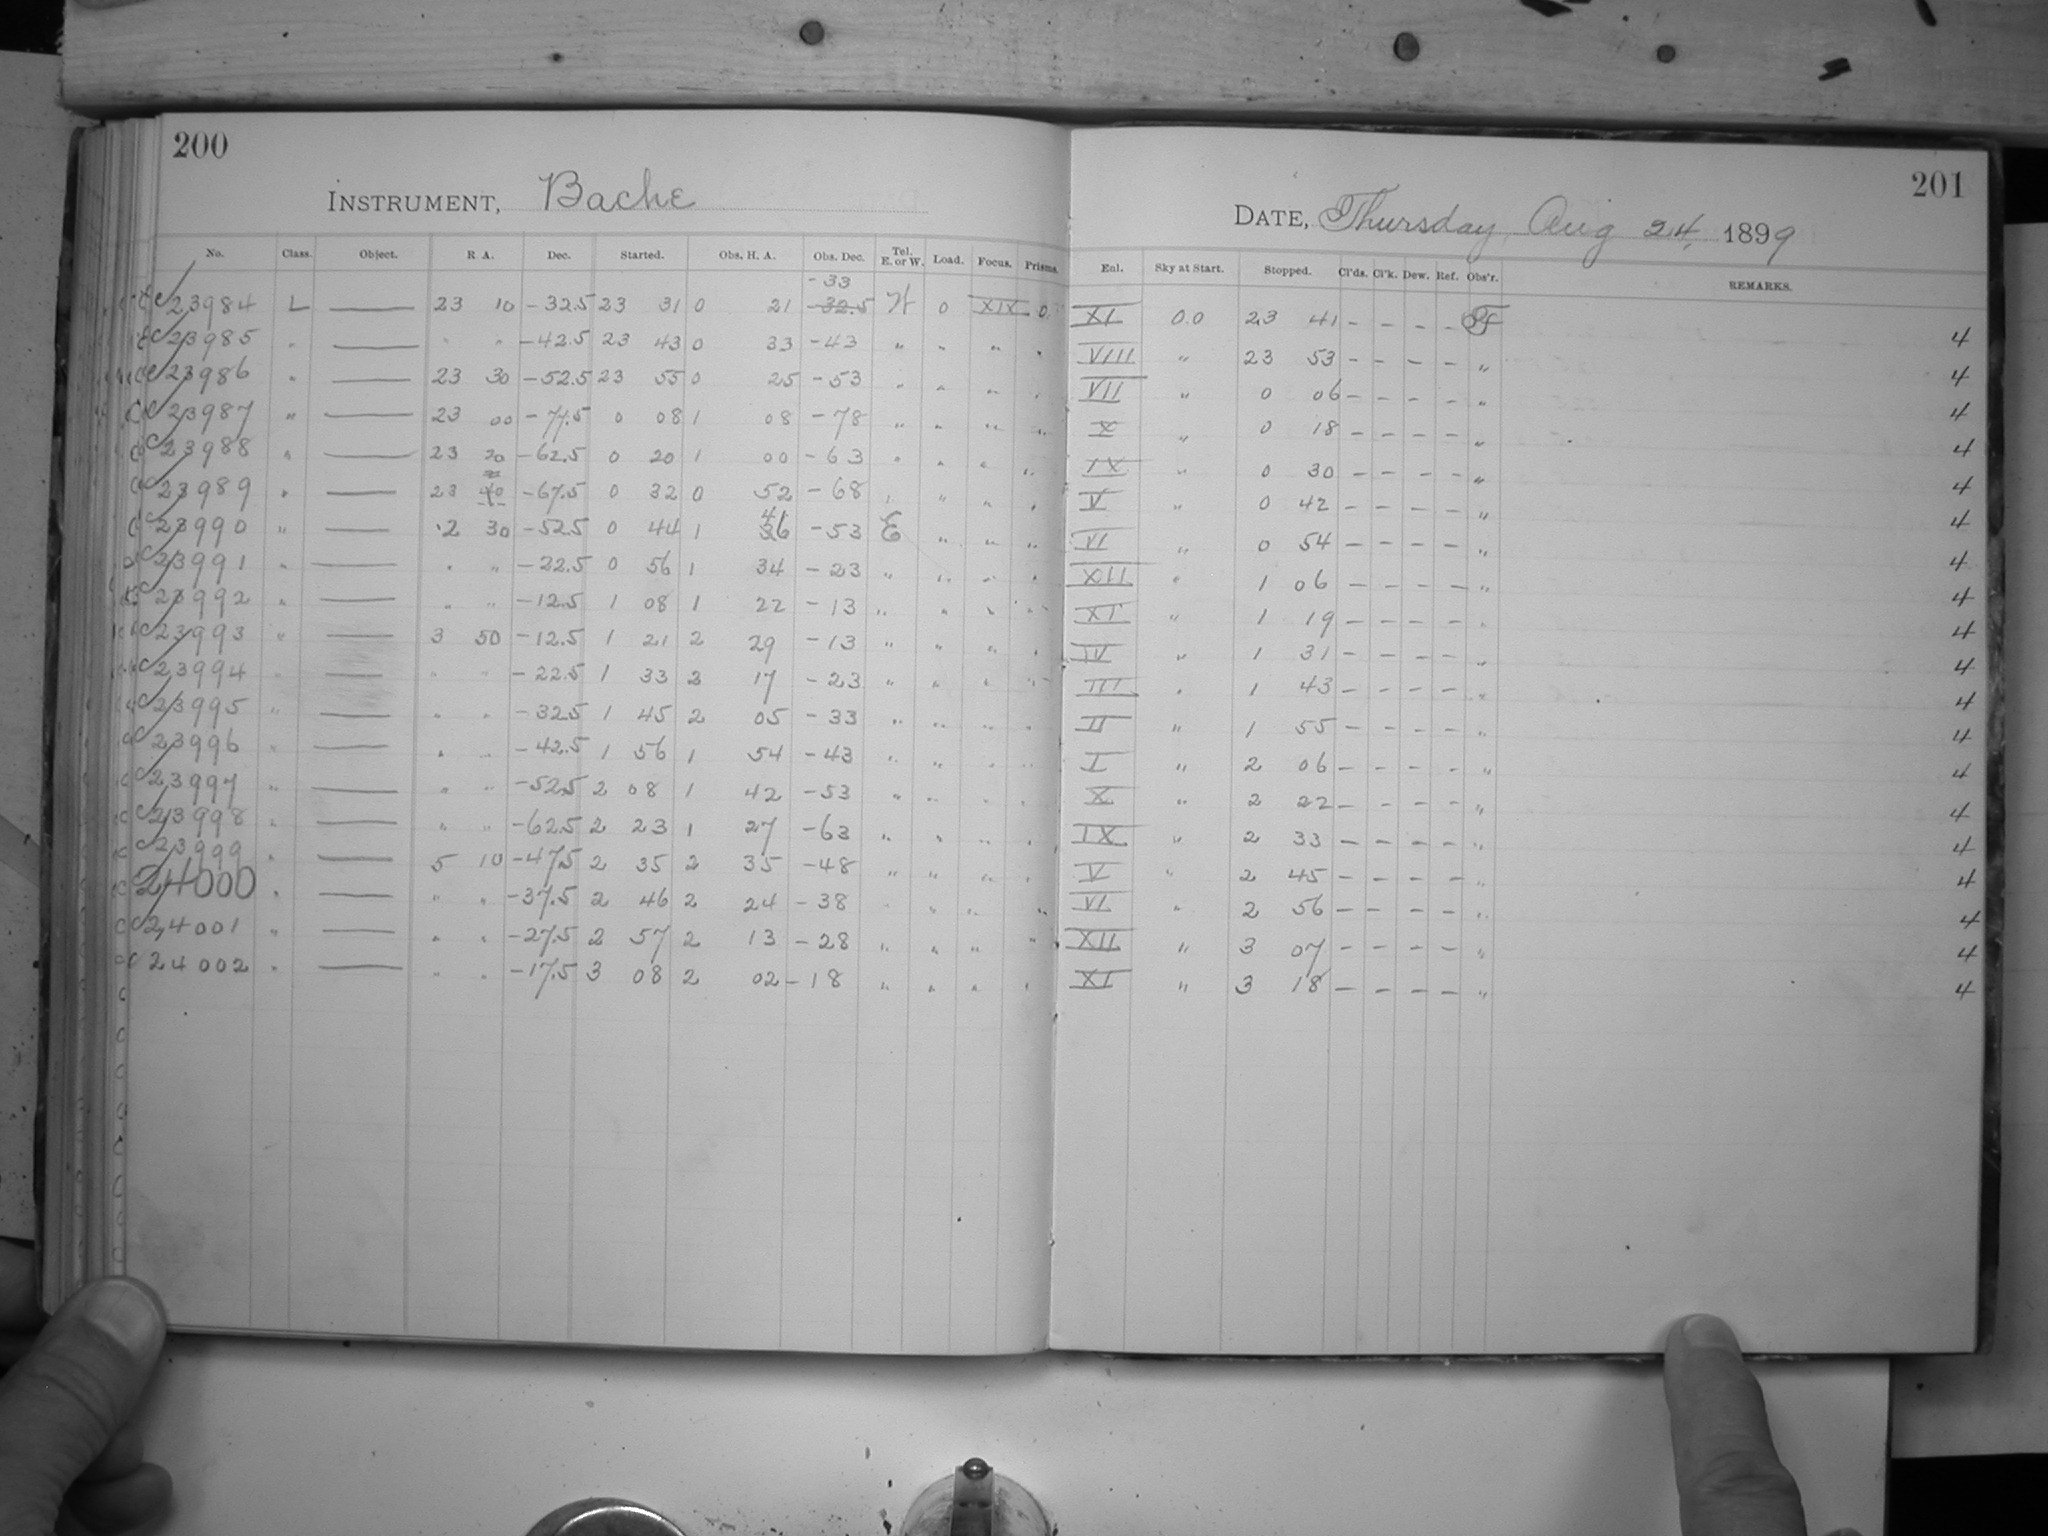 200
INSTRUMENT, Bache
No. Class. Object. R. A. Dec. Started. Obs. H. A. Obs. Dec. Tel. E. or W. Load. Focus. Prisms.
-33
C 23984 L — 23 10 -32.5 23 31 0 21 -32.5 W 0 XIX 0
C 23985 " — " " -42.5 23 43 0 33 -43 " " " "
C 23986 " — 23 30 -52.5 23 55 0 25 -53 " " " "
C 23987 " — 23 00 -77.5 0 08 1 08 -78 " " " "
C 23988 " — 23 20 -62.5 0 20 1 00 -63 " " " "
C 23989 " — 23 40 -67.5 0 32 0 52 -68 " " " "
C 23990 " — 2 30 -52.5 0 44 1 46 -53 E " " "
C 23991 " — " " -22.5 0 56 1 34 -23 " " " "
C 23992 " — " " -12.5 1 08 1 22 -13 " " " "
C 23993 " — 3 50 -12.5 1 21 2 29 -13 " " " "
C 23994 " — " " -22.5 1 33 2 17 -23 " " " "
C 23995 " — " " -32.5 1 45 2 05 -33 " " " "
C 23996 " — " " -42.5 1 56 1 54 -43 " " " "
C 23997 " — " " -52.5 2 08 1 42 -53 " " " "
C 23998 " — " " -62.5 2 23 1 27 -63 " " " "
C 23999 " — 5 10 -47.5 2 35 2 35 -48 " " " "
C 24000 " — " " -37.5 2 46 2 24 -38 " " " "
C 24001 " — " " -27.5 2 57 2 13 -28 " " " "
C 24002 " — " " -17.5 3 08 2 02 -18 " " " "
201
DATE, Thursday, Aug 24, 1899
Enl. Sky at Start. Stopped. Cl'ds. Cl'k. Dew. Ref. Obs'r. REMARKS.
XI 0.0 23 41 — — — — 4
VIII " 23 53 — — — — " 4
VII " 0 06 — — — — " 4
X " 0 18 — — — — " 4
IX " 0 30 — — — — " 4
V " 0 42 — — — — " 4
VI " 0 54 — — — — " 4
XII " 1 06 — — — — " 4
XI " 1 19 — — — — " 4
IV " 1 31 — — — — " 4
III " 1 43 — — — — " 4
II " 1 55 — — — — " 4
I " 2 06 — — — — " 4
X " 2 22 — — — — " 4
IX " 2 33 — — — — " 4
V " 2 45 — — — — " 4
VI " 2 56 — — — — " 4
XII " 3 07 — — — — " 4
XI " 3 18 — — — — " 4